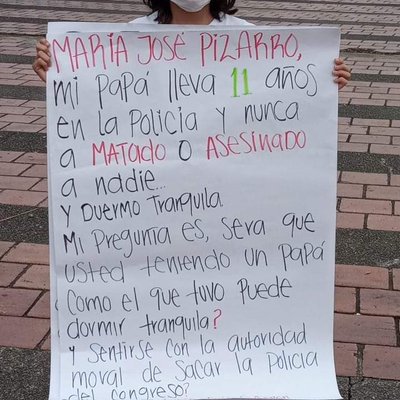 MARÍA JOSÉ PIZARRO,
mi PAPÁ lleva 11 años
en la Policía y nunca
a MATADO o ASESINADO
a nadie...
y Duermo TRANQUILA.
Mi Pregunta es, Sera que
usted teniendo un PaPÁ
como el que tuvo Puede
dormir tranquila?
y sentirse con la autoridad
moral de Sacar la Policía
del congreso?